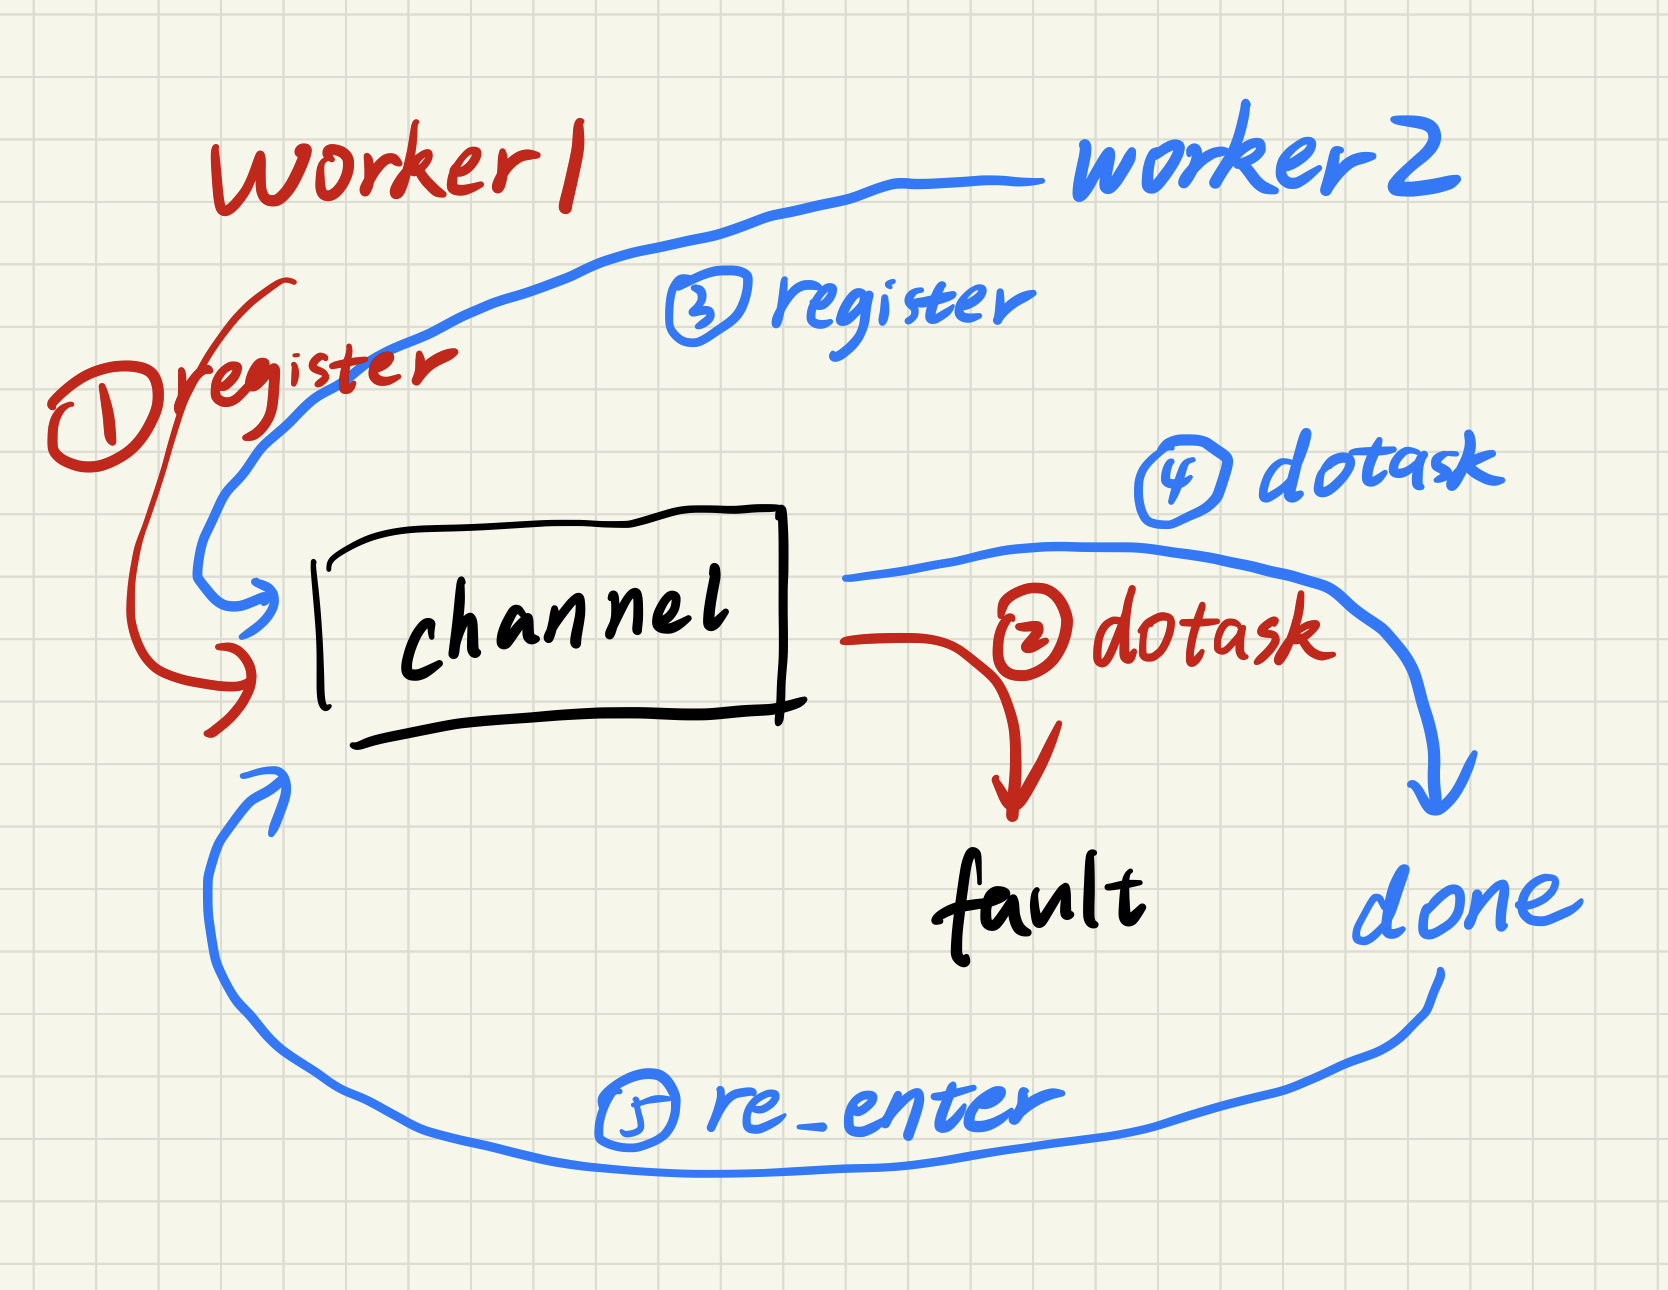 worker1
worker2
③ register
① register
④ dotask
channel
② dotask
fault
done
⑤ re_enter